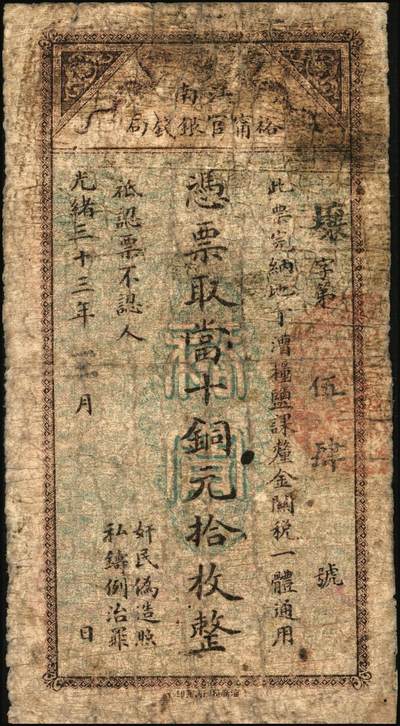 江南
裕甯官銀錢局
壤字第伍肆號
此票完納地丁漕糧鹽課釐金關稅一體通用
憑票取當十銅元拾枚整
祗認票不認人
奸民偽造照
私鑄例治罪
光緒三十三年 月 日